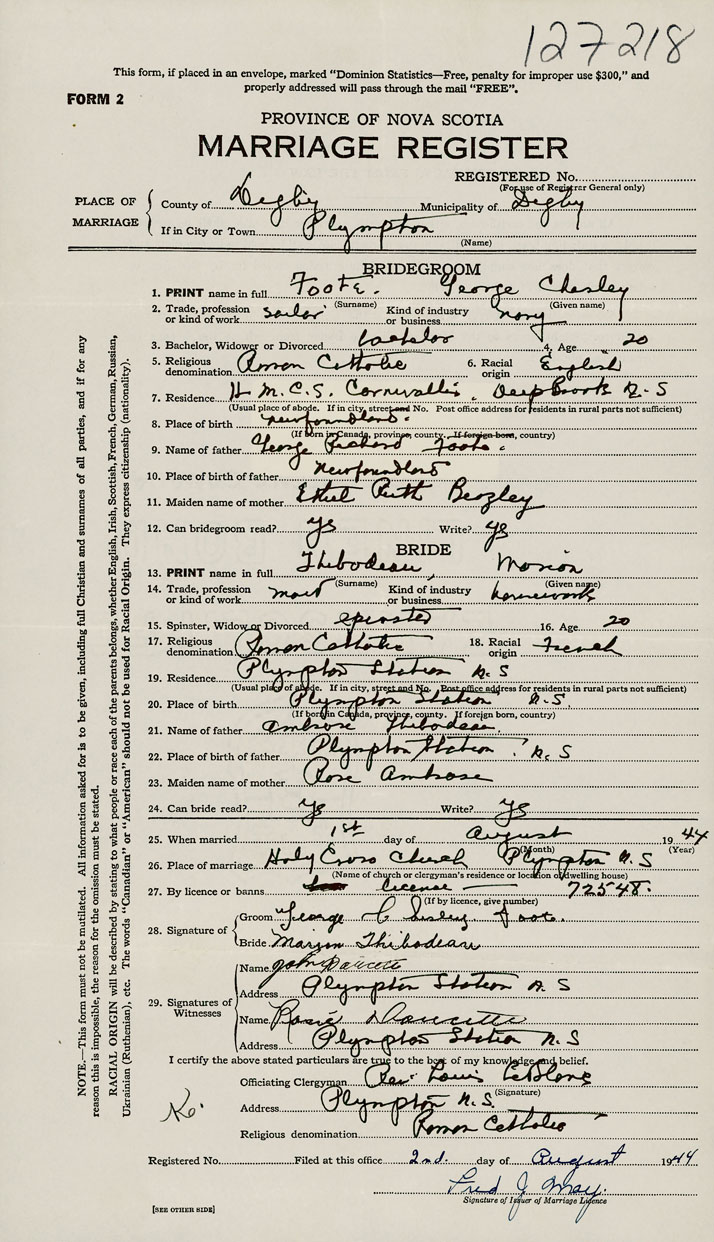 127218
This form, if placed in an envelope, marked "Dominion Statistics—Free, penalty for improper use $300," and
properly addressed will pass through the mail "FREE".
FORM 2
PROVINCE OF NOVA SCOTIA
MARRIAGE REGISTER
REGISTERED No.
(For use of Registrar General only)
PLACE OF MARRIAGE
County of Digby Municipality of Digby
If in City or Town Plympton
(Name)
BRIDEGROOM
1. PRINT name in full Foote. George Chesley
(Surname) (Given name)
2. Trade, profession or kind of work sailor Kind of industry or business navy
3. Bachelor, Widower or Divorced bachelor 4. Age 20
5. Religious denomination Roman Catholic 6. Racial origin English
7. Residence H.M.C.S. Cornwallis, Deep Brook N.S
(Usual place of abode. If in city, street and No. Post office address for residents in rural parts not sufficient)
8. Place of birth newfoundland.
(If born in Canada, province, county. If foreign born, country)
9. Name of father George Richard Foote.
10. Place of birth of father Newfoundland
11. Maiden name of mother Ethel Ruth
12. Can bridegroom read? yes Write? yes
BRIDE
13. PRINT name in full Thibodeau, Marion
(Surname) (Given name)
14. Trade, profession or kind of work maid Kind of industry or business housework
15. Spinster, Widow or Divorced spinster 16. Age 20
17. Religious denomination Roman Catholic 18. Racial origin French
19. Residence Plympton Station N.S
(Usual place of abode. If in city, street and No. Post office address for residents in rural parts not sufficient)
20. Place of birth Plympton Station N.S.
(If born in Canada, province, county. If foreign born, country)
21. Name of father Ambrose Thibodeau.
22. Place of birth of father Plympton Station N.S
23. Maiden name of mother Rose Ambrose
24. Can bride read? yes Write? yes
25. When married 1st day of August 1944
(Month) (Year)
26. Place of marriage Holy Cross Church Plympton N.S
(Name of church or clergyman's residence or location of dwelling house)
27. By licence or banns License — 72548.
(If by licence, give number)
28. Signature of
Groom George Chesley Foote.
Bride Marion Thibodeau
29. Signatures of Witnesses
Name John Doucette
Address Plympton Station N.S
Name Rosie Doucette
Address Plympton Station N.S
I certify the above stated particulars are true to the best of my knowledge and belief.
Officiating Clergyman Rev Louis LeBlanc
(Signature)
Address Plympton N.S.
Religious denomination Roman Catholic
Registered No. Filed at this office 2nd. day of August 1944
Fred J May.
Signature of Issuer of Marriage Licence
[SEE OTHER SIDE]
NOTE.—This form must not be mutilated. All information asked for is to be given, including full Christian and surnames of all parties, and if for any
reason this is impossible, the reason for the omission must be stated.
RACIAL ORIGIN will be described by stating to what people or race each of the parents belongs, whether English, Irish, Scottish, French, German, Russian,
Ukrainian (Ruthenian), etc. The words "Canadian" or "American" should not be used for Racial Origin. They express citizenship (nationality).